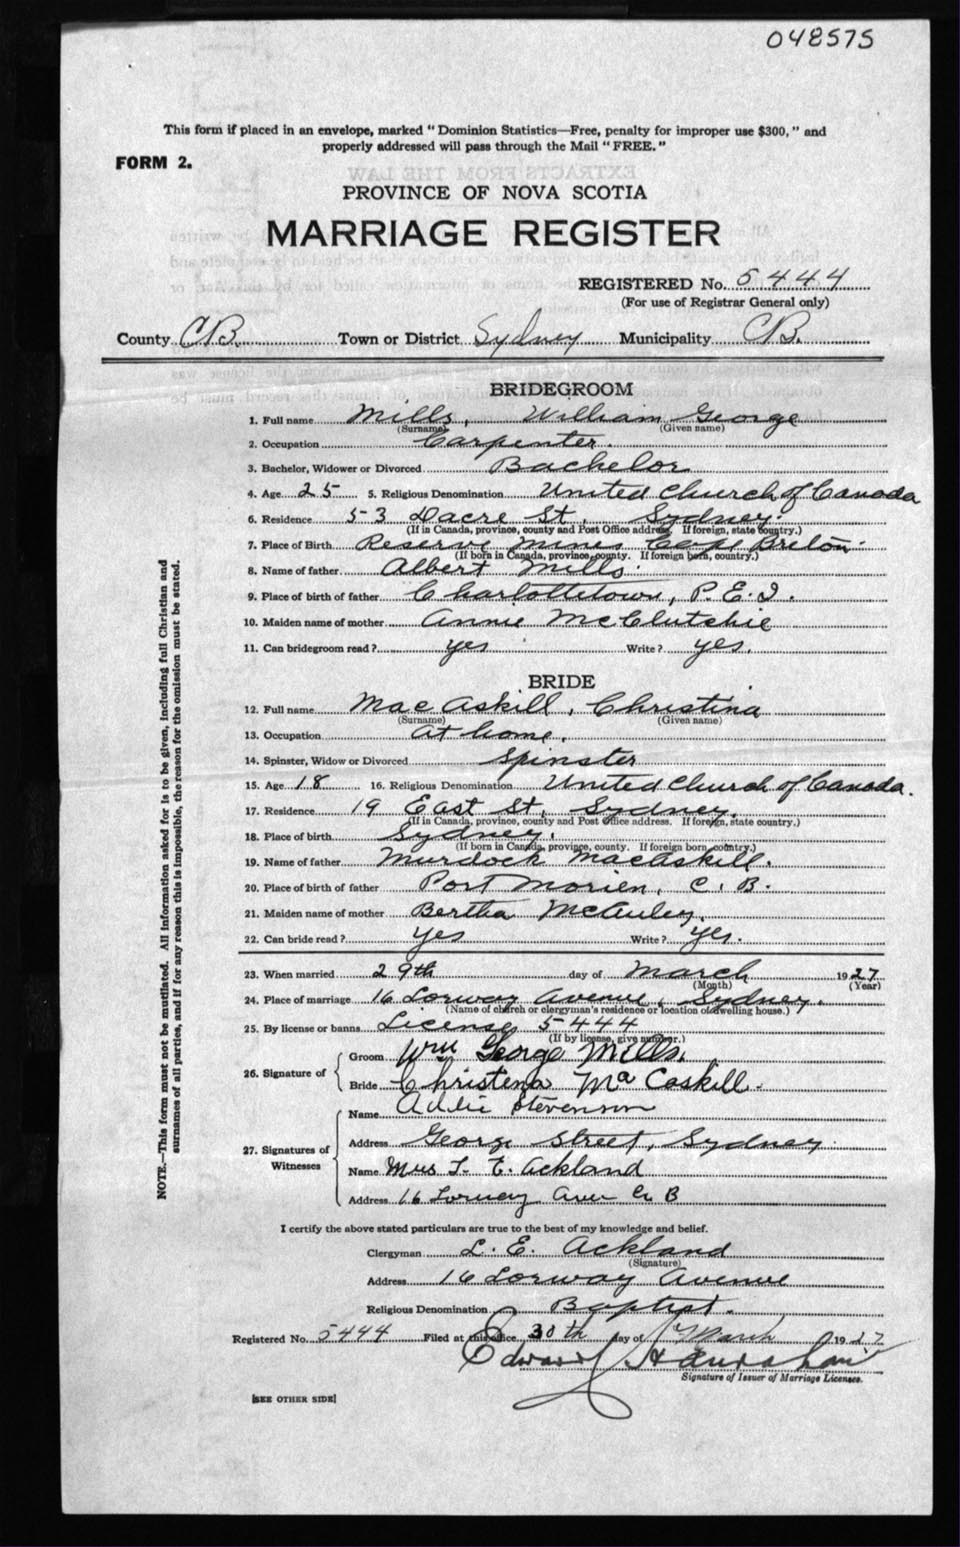 048575
This form if placed in an envelope, marked "Dominion Statistics—Free, penalty for improper use $300," and
properly addressed will pass through the Mail "FREE."
FORM 2.
PROVINCE OF NOVA SCOTIA
MARRIAGE REGISTER
REGISTERED No. 5444
(For use of Registrar General only)
County C.B. Town or District Sydney Municipality C.B.
BRIDEGROOM
1. Full name Mills, William George
(Surname) (Given name)
2. Occupation Carpenter.
3. Bachelor, Widower or Divorced Bachelor
4. Age 25 5. Religious Denomination United Church of Canada
6. Residence 53 Dacre St, Sydney.
(If in Canada, province, county and Post Office address. If foreign, state country.)
7. Place of Birth Reserve Mines Cape Breton.
(If born in Canada, province, county. If foreign born, country.)
8. Name of father Albert Mills.
9. Place of birth of father Charlottetown, P.E.I.
10. Maiden name of mother Annie McClutchie
11. Can bridegroom read? yes Write? yes.
BRIDE
12. Full name MacAskill, Christina
(Surname) (Given name)
13. Occupation At home.
14. Spinster, Widow or Divorced Spinster
15. Age 18 16. Religious Denomination United Church of Canada.
17. Residence 19 East St, Sydney.
(If in Canada, province, county and Post Office address. If foreign, state country.)
18. Place of birth Sydney.
(If born in Canada, province, county. If foreign born, country.)
19. Name of father Murdock MacAskill.
20. Place of birth of father Port Morien, C.B.
21. Maiden name of mother Bertha McAuley.
22. Can bride read? yes Write? yes.
23. When married 29th day of March 1927
(Month) (Year)
24. Place of marriage 16 Lorway Avenue, Sydney.
(Name of church or clergyman's residence or location of dwelling house.)
25. By license or banns License 5444
(If by license, give number.)
26. Signature of
Groom Wm George Mills.
Bride Christena Ma Caskill.
27. Signatures of Witnesses
Name Addie Stevenson
Address George Street, Sydney
Name Mrs L. E. Ackland
Address 16 Lorway Ave C B
I certify the above stated particulars are true to the best of my knowledge and belief.
Clergyman L. E. Ackland
(Signature)
Address 16 Lorway Avenue
Religious Denomination Baptist.
Registered No. 5444 Filed at this office 30th day of March 1927
Edward
Signature of Issuer of Marriage Licenses.
[SEE OTHER SIDE]
NOTE.—This form must not be mutilated. All information asked for is to be given, including full Christian and
surnames of all parties, and if for any reason this is impossible, the reason for the omission must be stated.